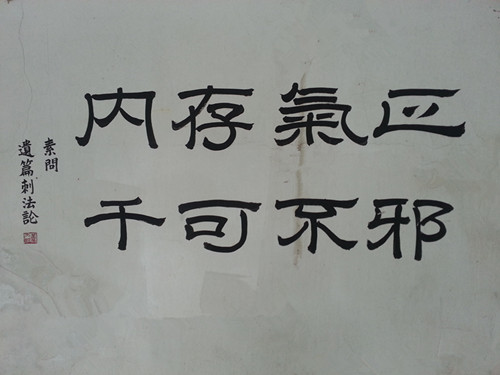 正氣存内
邪不可干
素問
遺篇刺法論